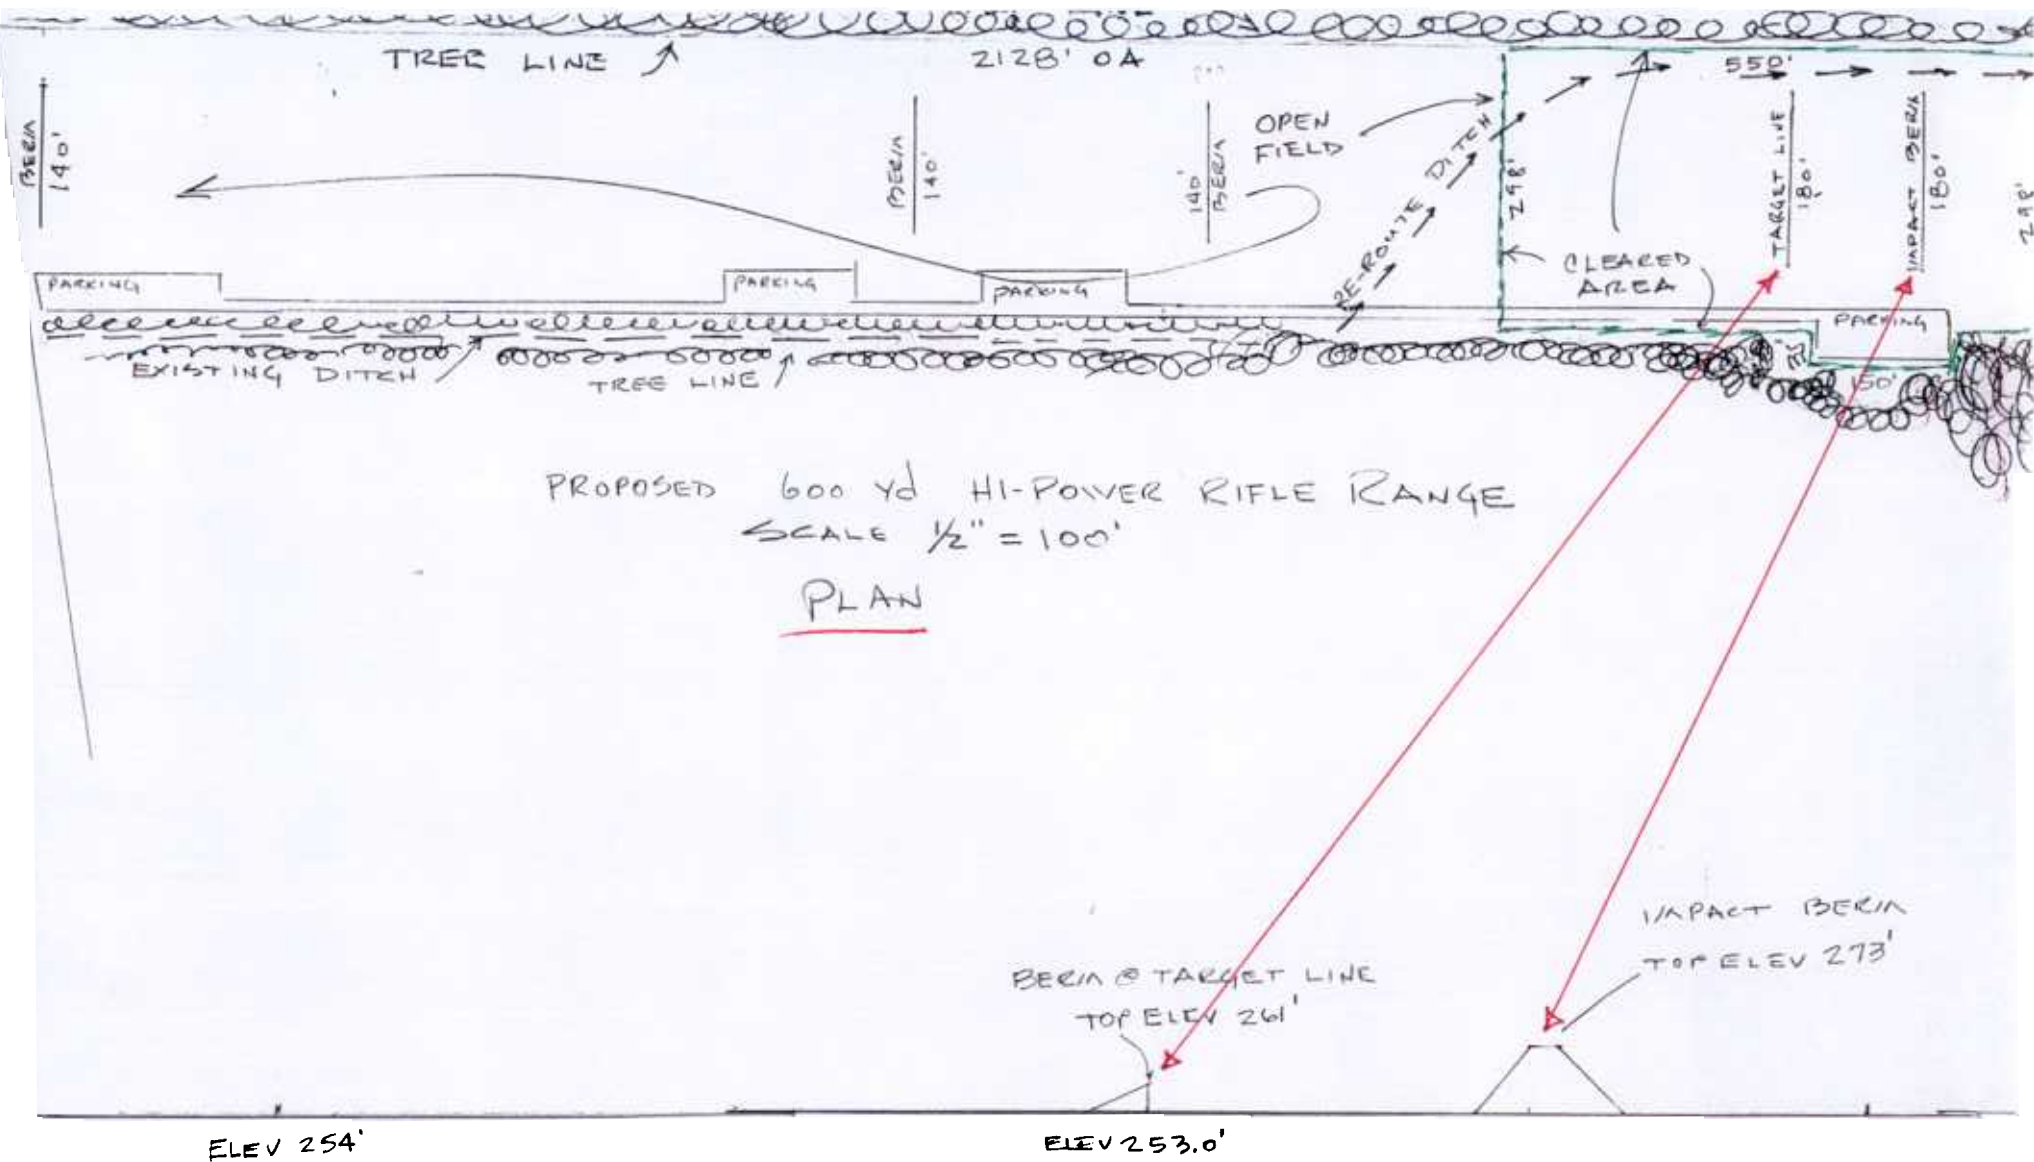 TREE LINE
2128' OA
550'
BERM
140'
BERM
140'
140'
BERM
OPEN
FIELD
RE-ROUTE DITCH
298'
TARGET LINE
180'
IMPACT BERM
180'
298'
CLEARED
AREA
PARKING
PARKING
PARKING
PARKING
150'
EXISTING DITCH
TREE LINE
PROPOSED 600 Yd HI-POWER RIFLE RANGE
SCALE 1/2" = 100'
PLAN
IMPACT BERM
TOP ELEV 273'
BERM @ TARGET LINE
TOP ELEV 261'
ELEV 254'
ELEV 253.0'